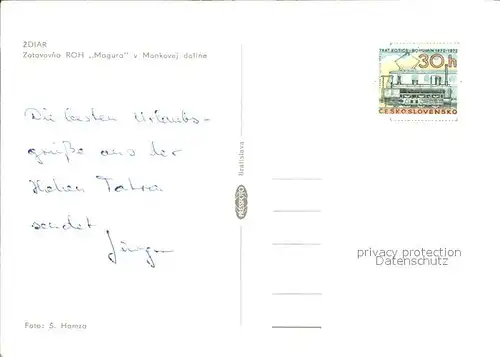 ŽDIAR
Zotavovňa ROH „Magura" v Monkovej doline
TRAŤ KOŠICE-BOHUMÍN 1872-1972
30 h
ČESKOSLOVENSKO
Die besten Urlaubs-
grüße aus der
Hohen Tatra
sendet
Jürgen
Bratislava
PRESSFOTO
privacy protection
Datenschutz
Foto: Š. Hamza